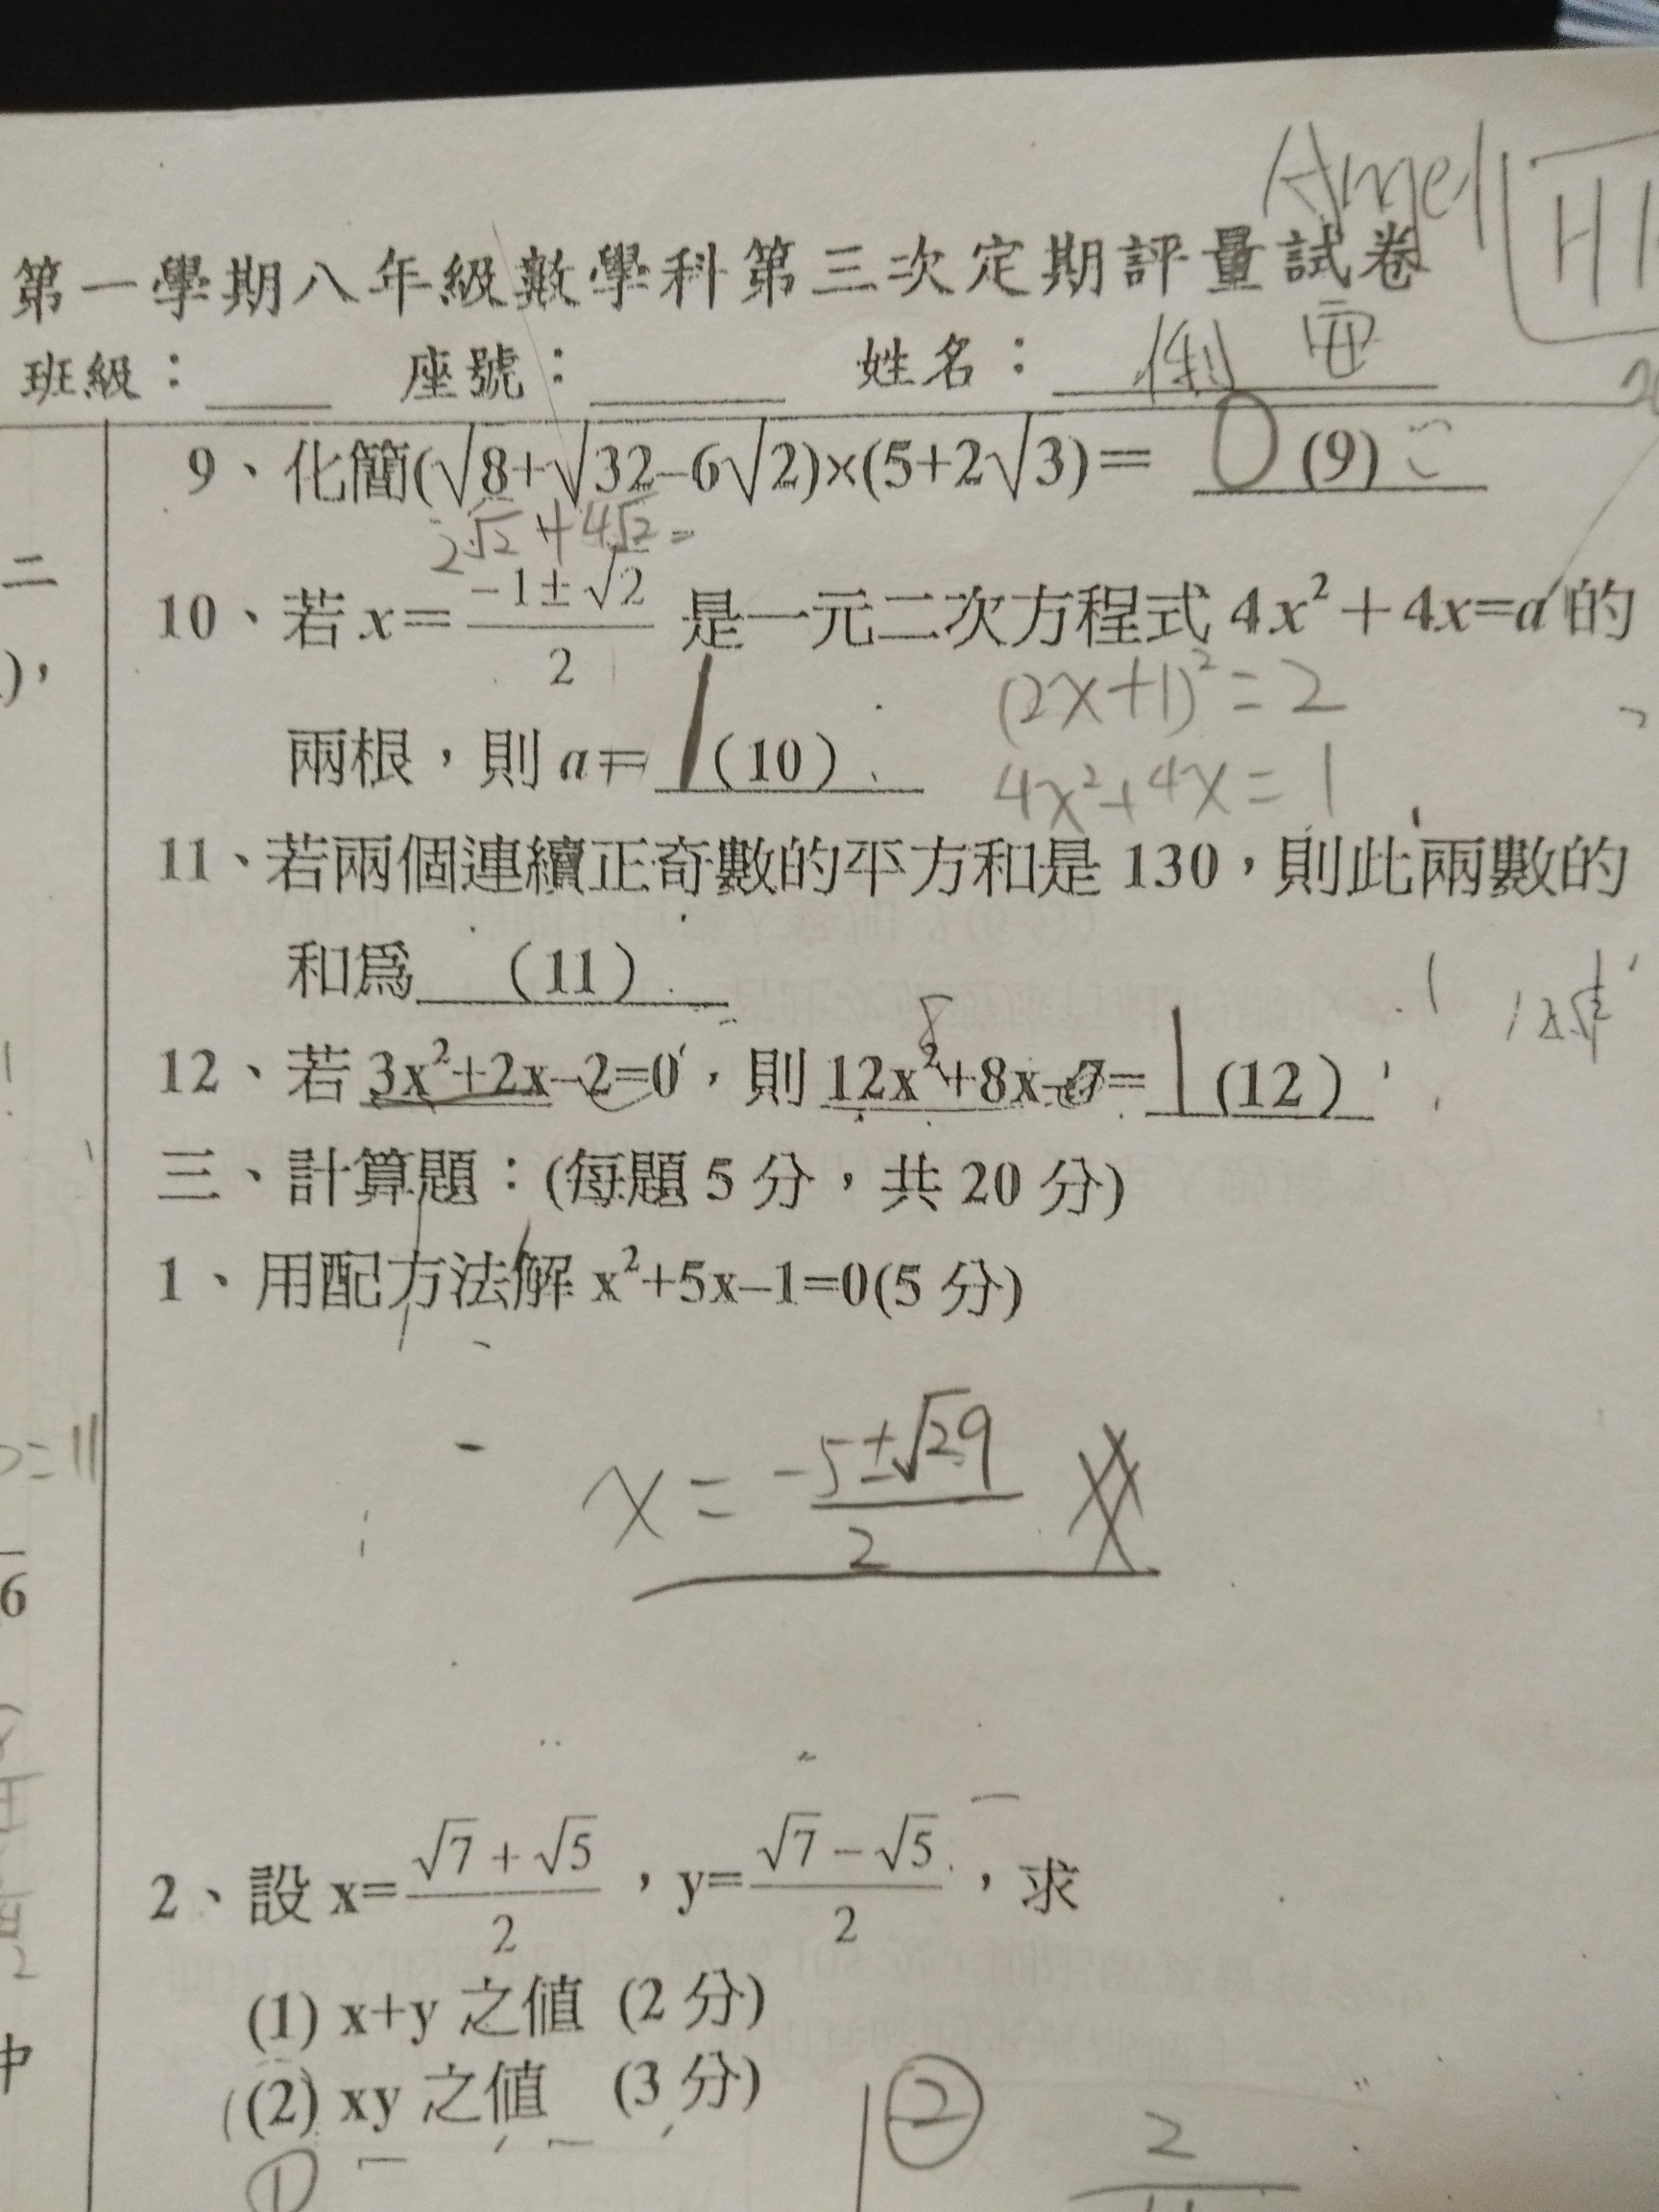 Angel
第一學期八年級數學科第三次定期評量試卷
班級：　座號：　姓名：
9、化簡(√8+√32–6√2)×(5+2√3)= 0 (9)
2√2+4√2=
10、若x=(-1±√2)/2 是一元二次方程式 4x²+4x=a 的
(2x+1)²=2
兩根，則 a= 1 (10)
4x²+4x=1
11、若兩個連續正奇數的平方和是 130，則此兩數的
和為 (11)
8
12、若 3x²+2x–2=0，則 12x²+8x–7= 1 (12)
三、計算題：(每題 5 分，共 20 分)
1、用配方法解 x²+5x–1=0(5 分)
x=(-5±√29)/2
2、設 x=(√7+√5)/2，y=(√7−√5)/2，求
(1) x+y 之值 (2 分)
(2) xy 之值 (3 分)
① ②
2
二
),
=11
6
中